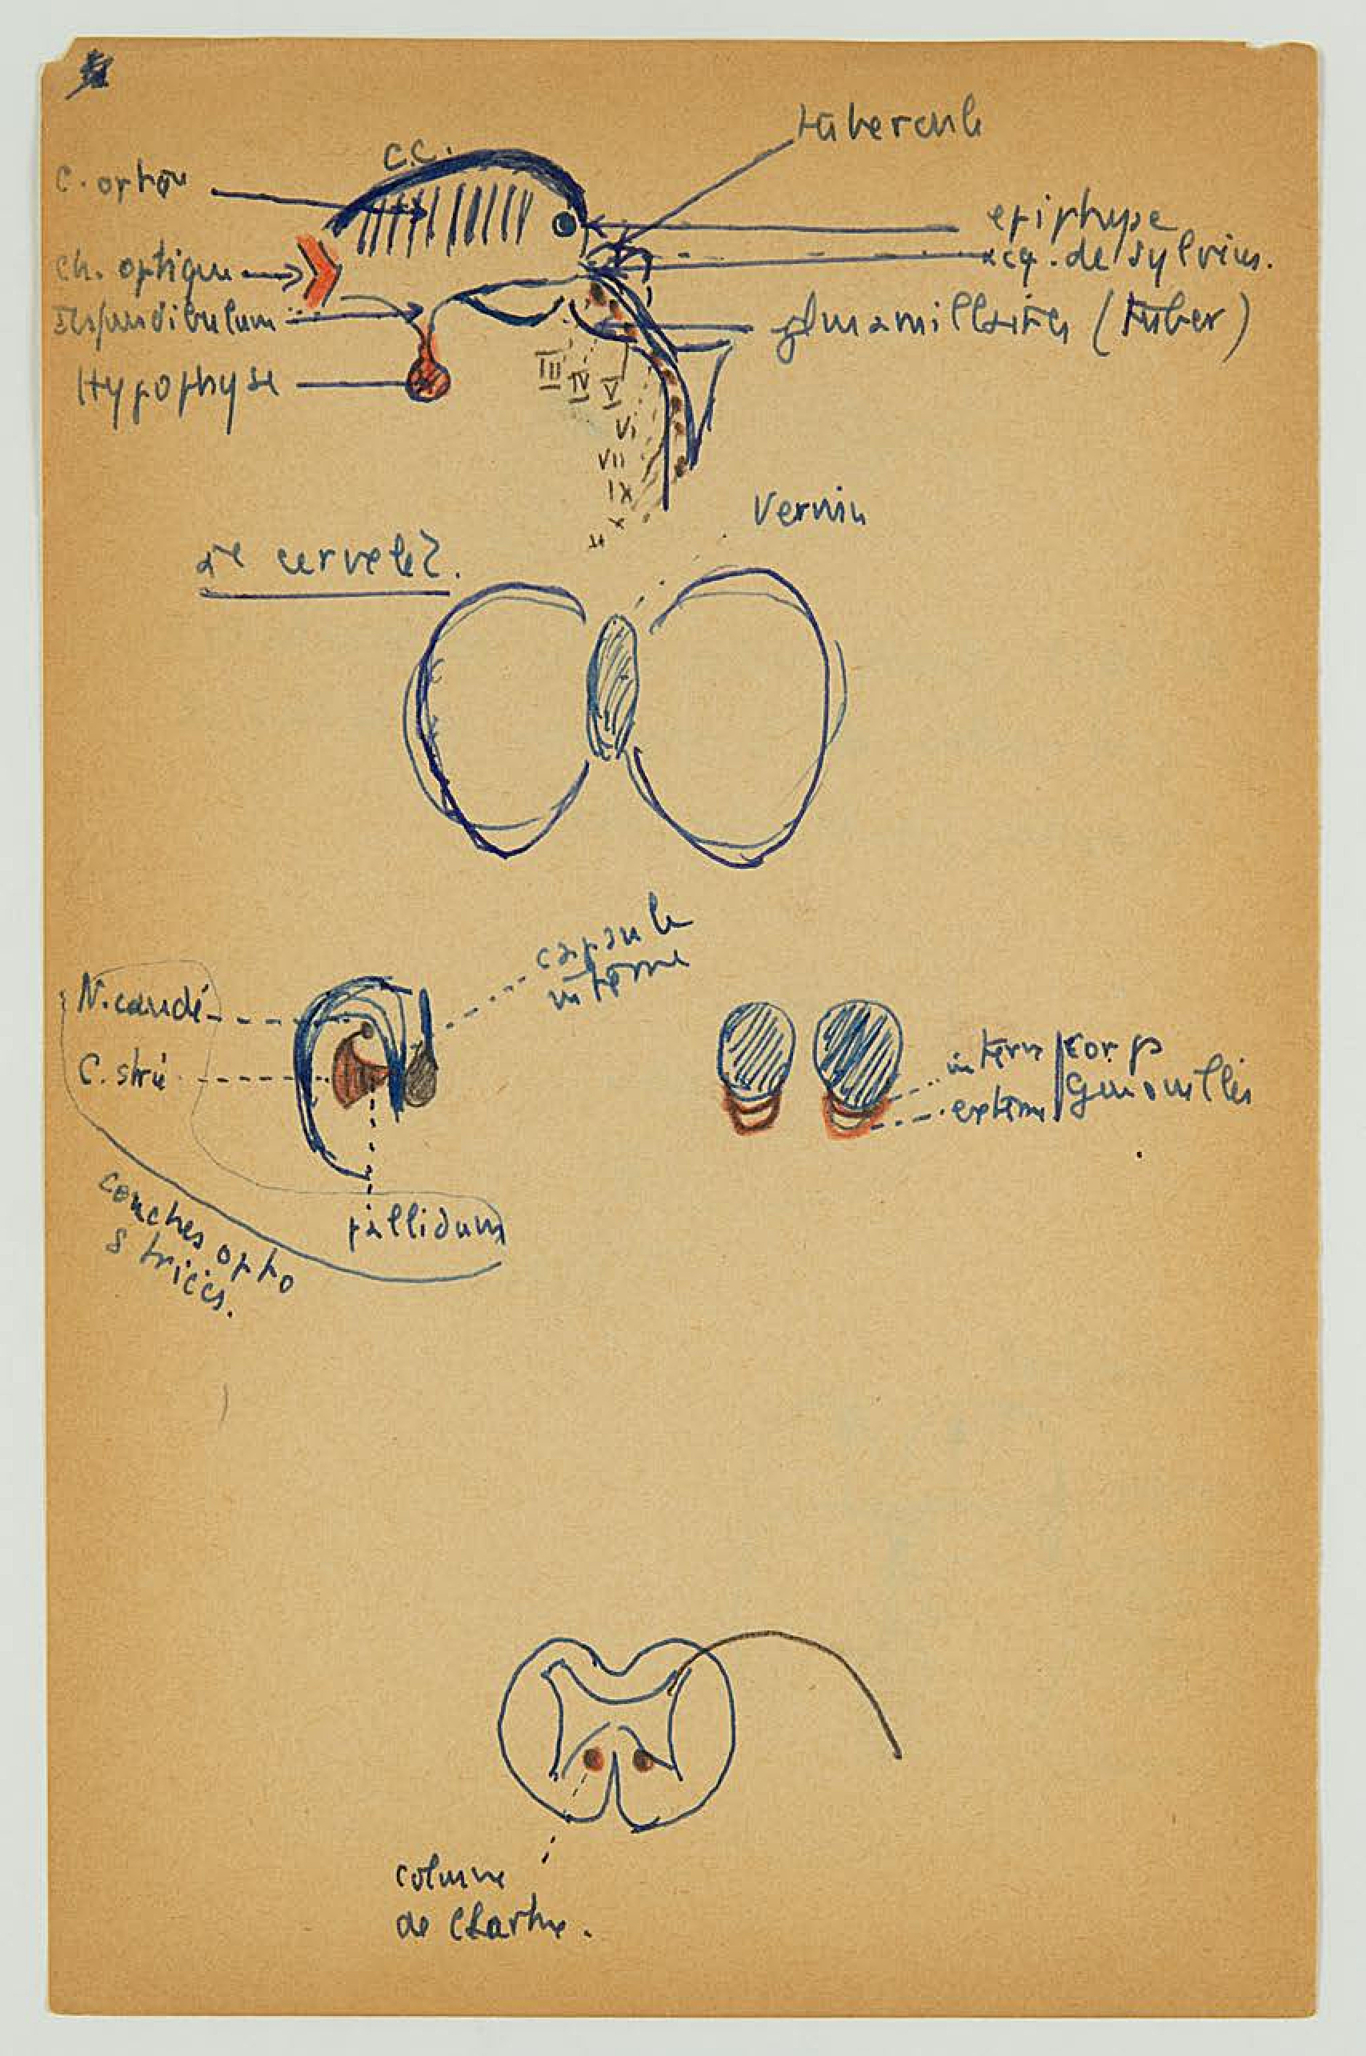 tubercule
c.c.
C. opton
epiphyse
acq. de Sylvius.
ch. optique
Infundibulum
gl mamillaires (tuber)
Hypophyse
III
IV
V
VI
VII
IX
X
XI
Vermis
le cervelet.
capsule
interne
N. caudé
C. strié
interne
externe
corps
Genouillés
pallidum
couches opto
striées.
colonne
de Clarke.